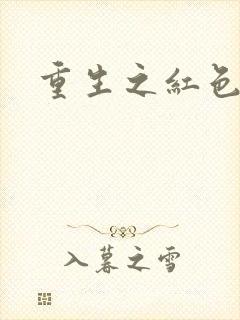 重生之紅色
入暮之雪